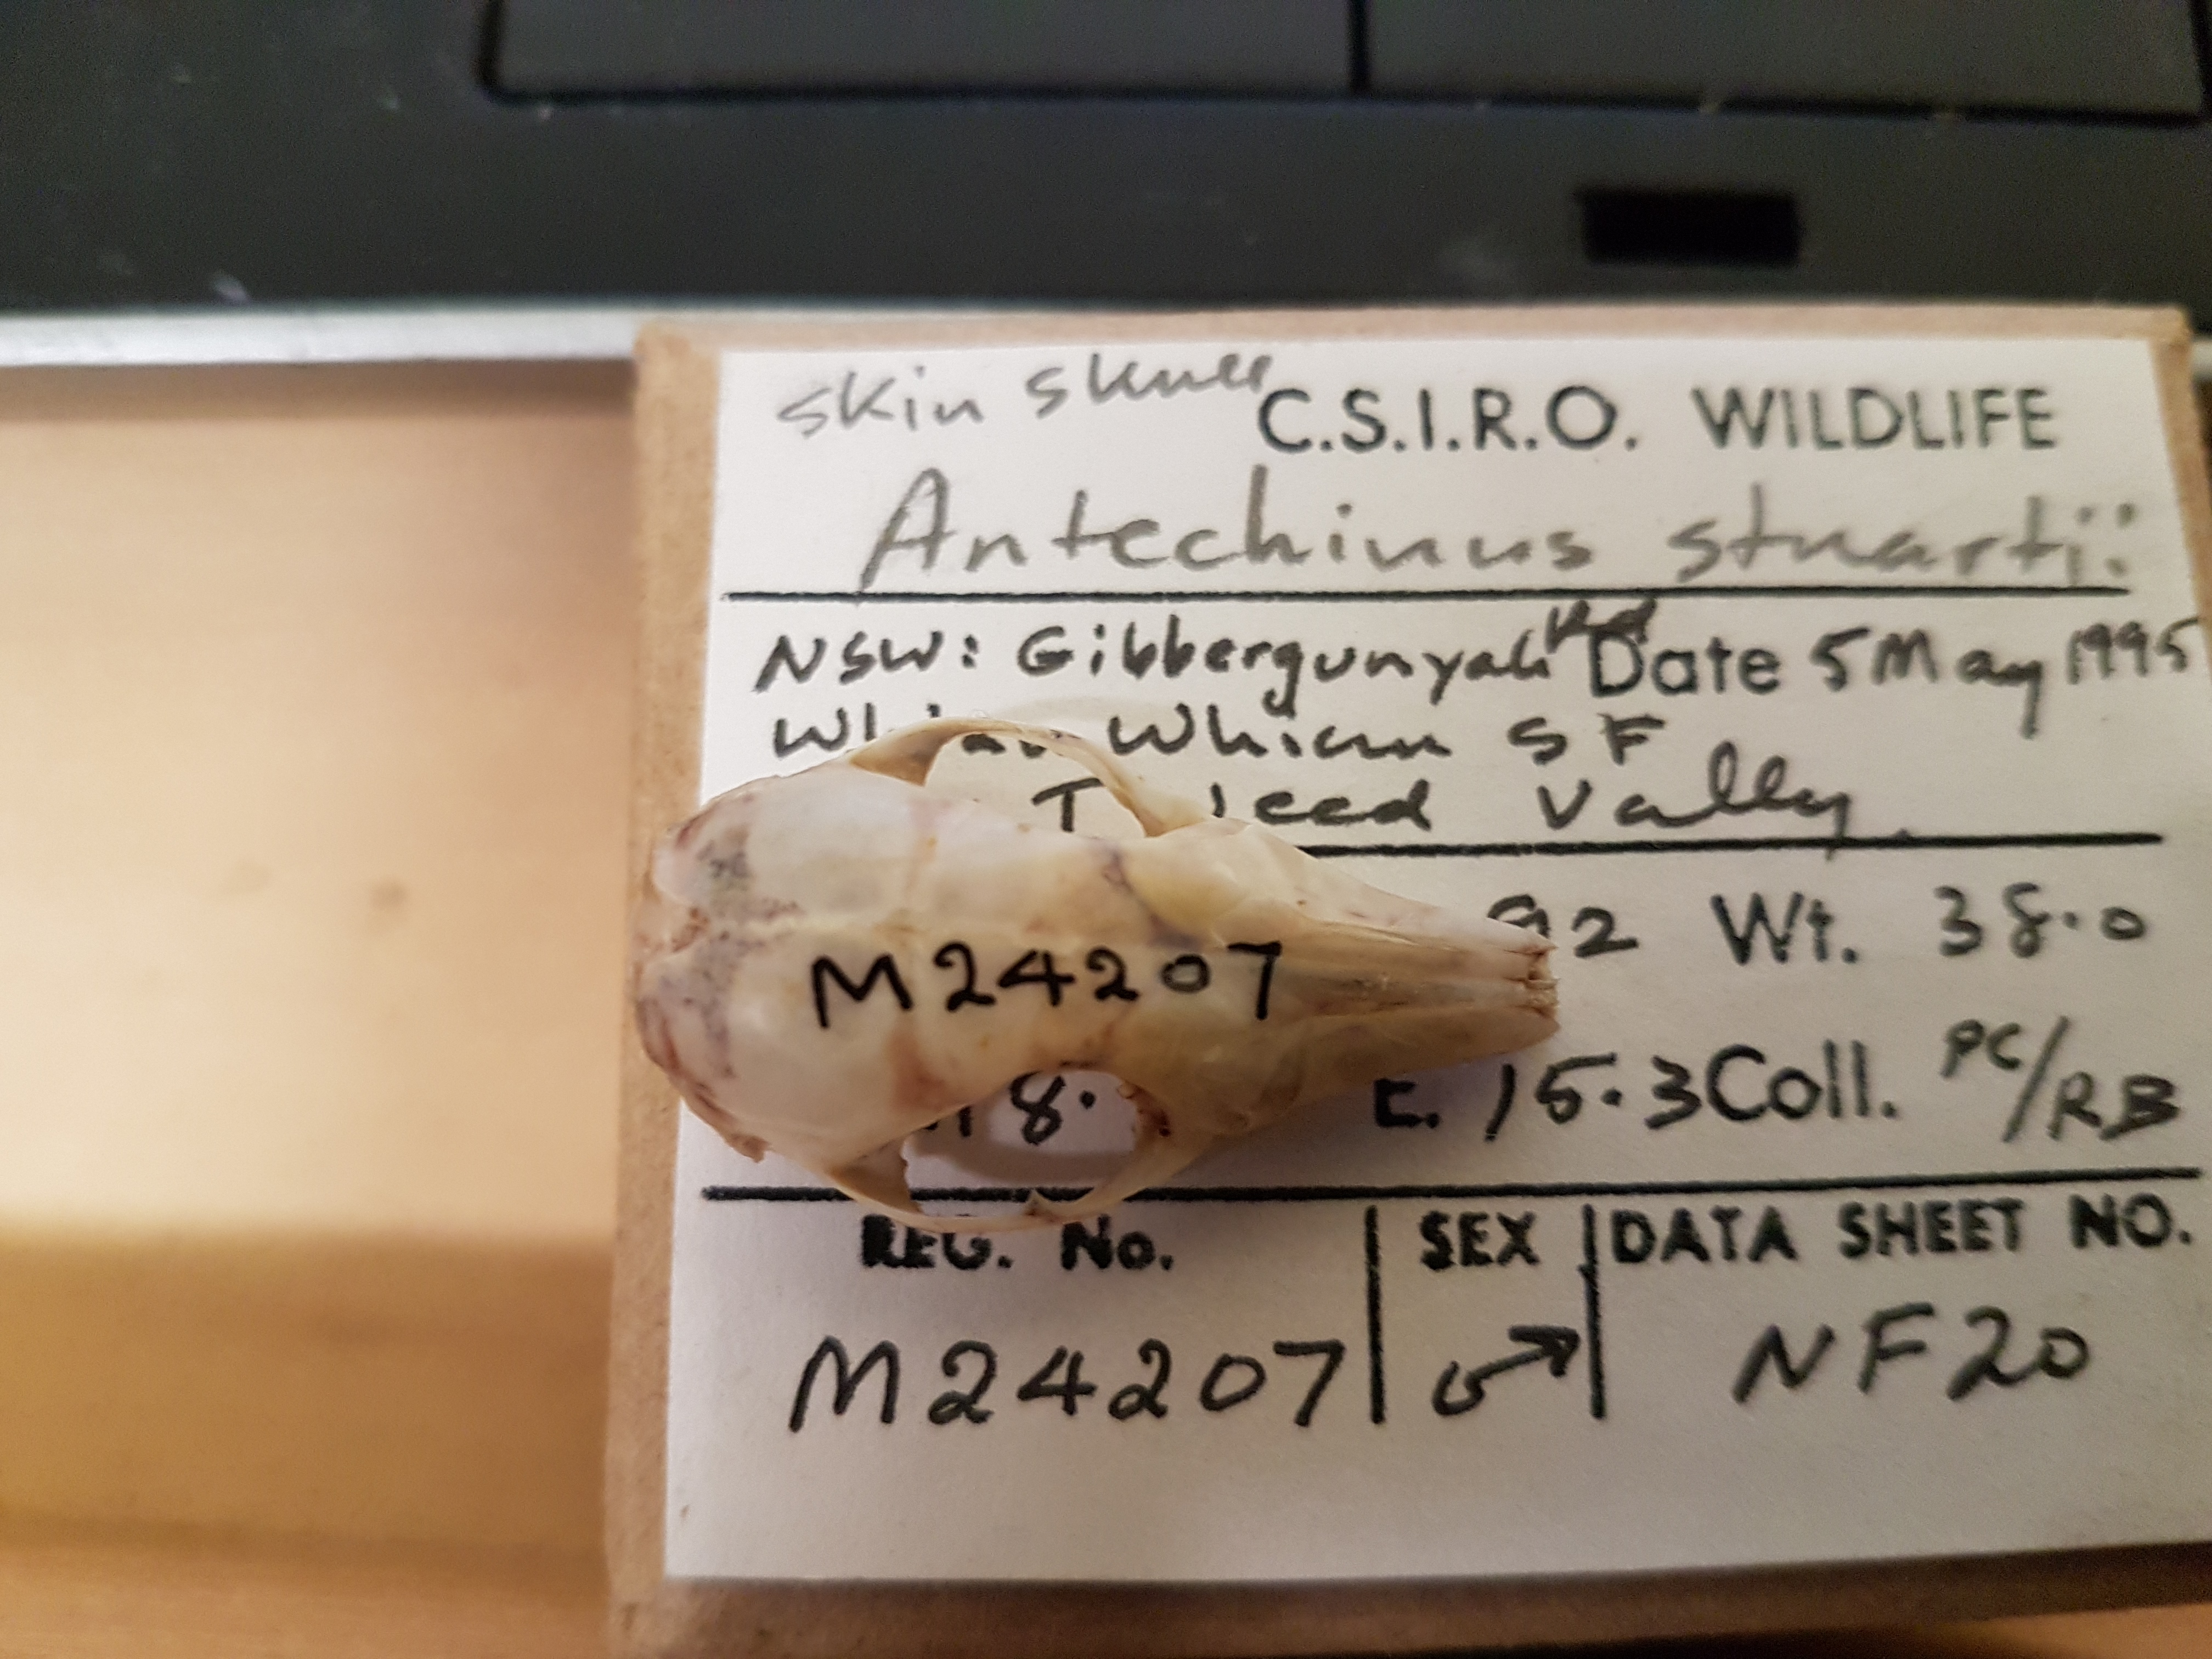 skin skull
C.S.I.R.O. WILDLIFE
Antechinus stuartii
NSW: Gibbergunyah Date 5 May 1995
Whian Whian SF
Valley
Wt. 38.0
E. 15.3 Coll. PC/RB
REG. NO. | SEX | DATA SHEET NO.
M24207 | ♂ | NF20
M24207